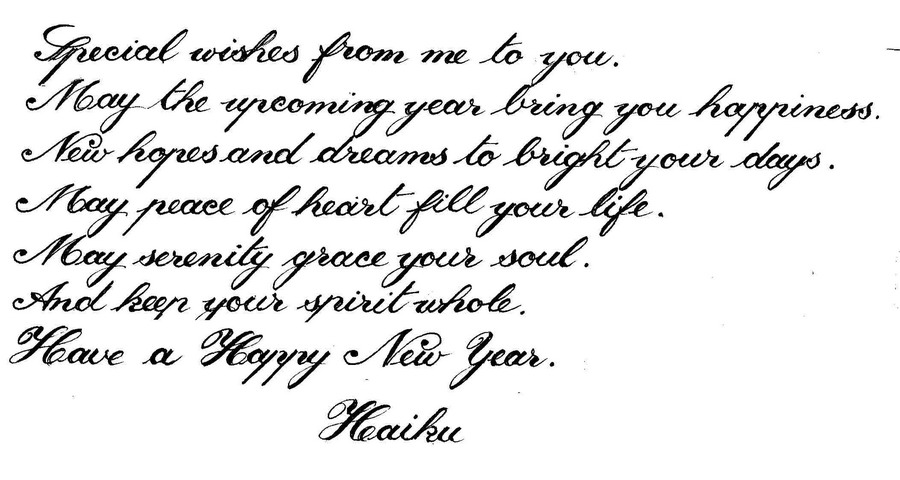 Special wishes from me to you.
May the upcoming year bring you happiness.
New hopes and dreams to bright your days.
May peace of heart fill your life.
May serenity grace your soul.
And keep your spirit whole.
Have a Happy New Year.
Haiku